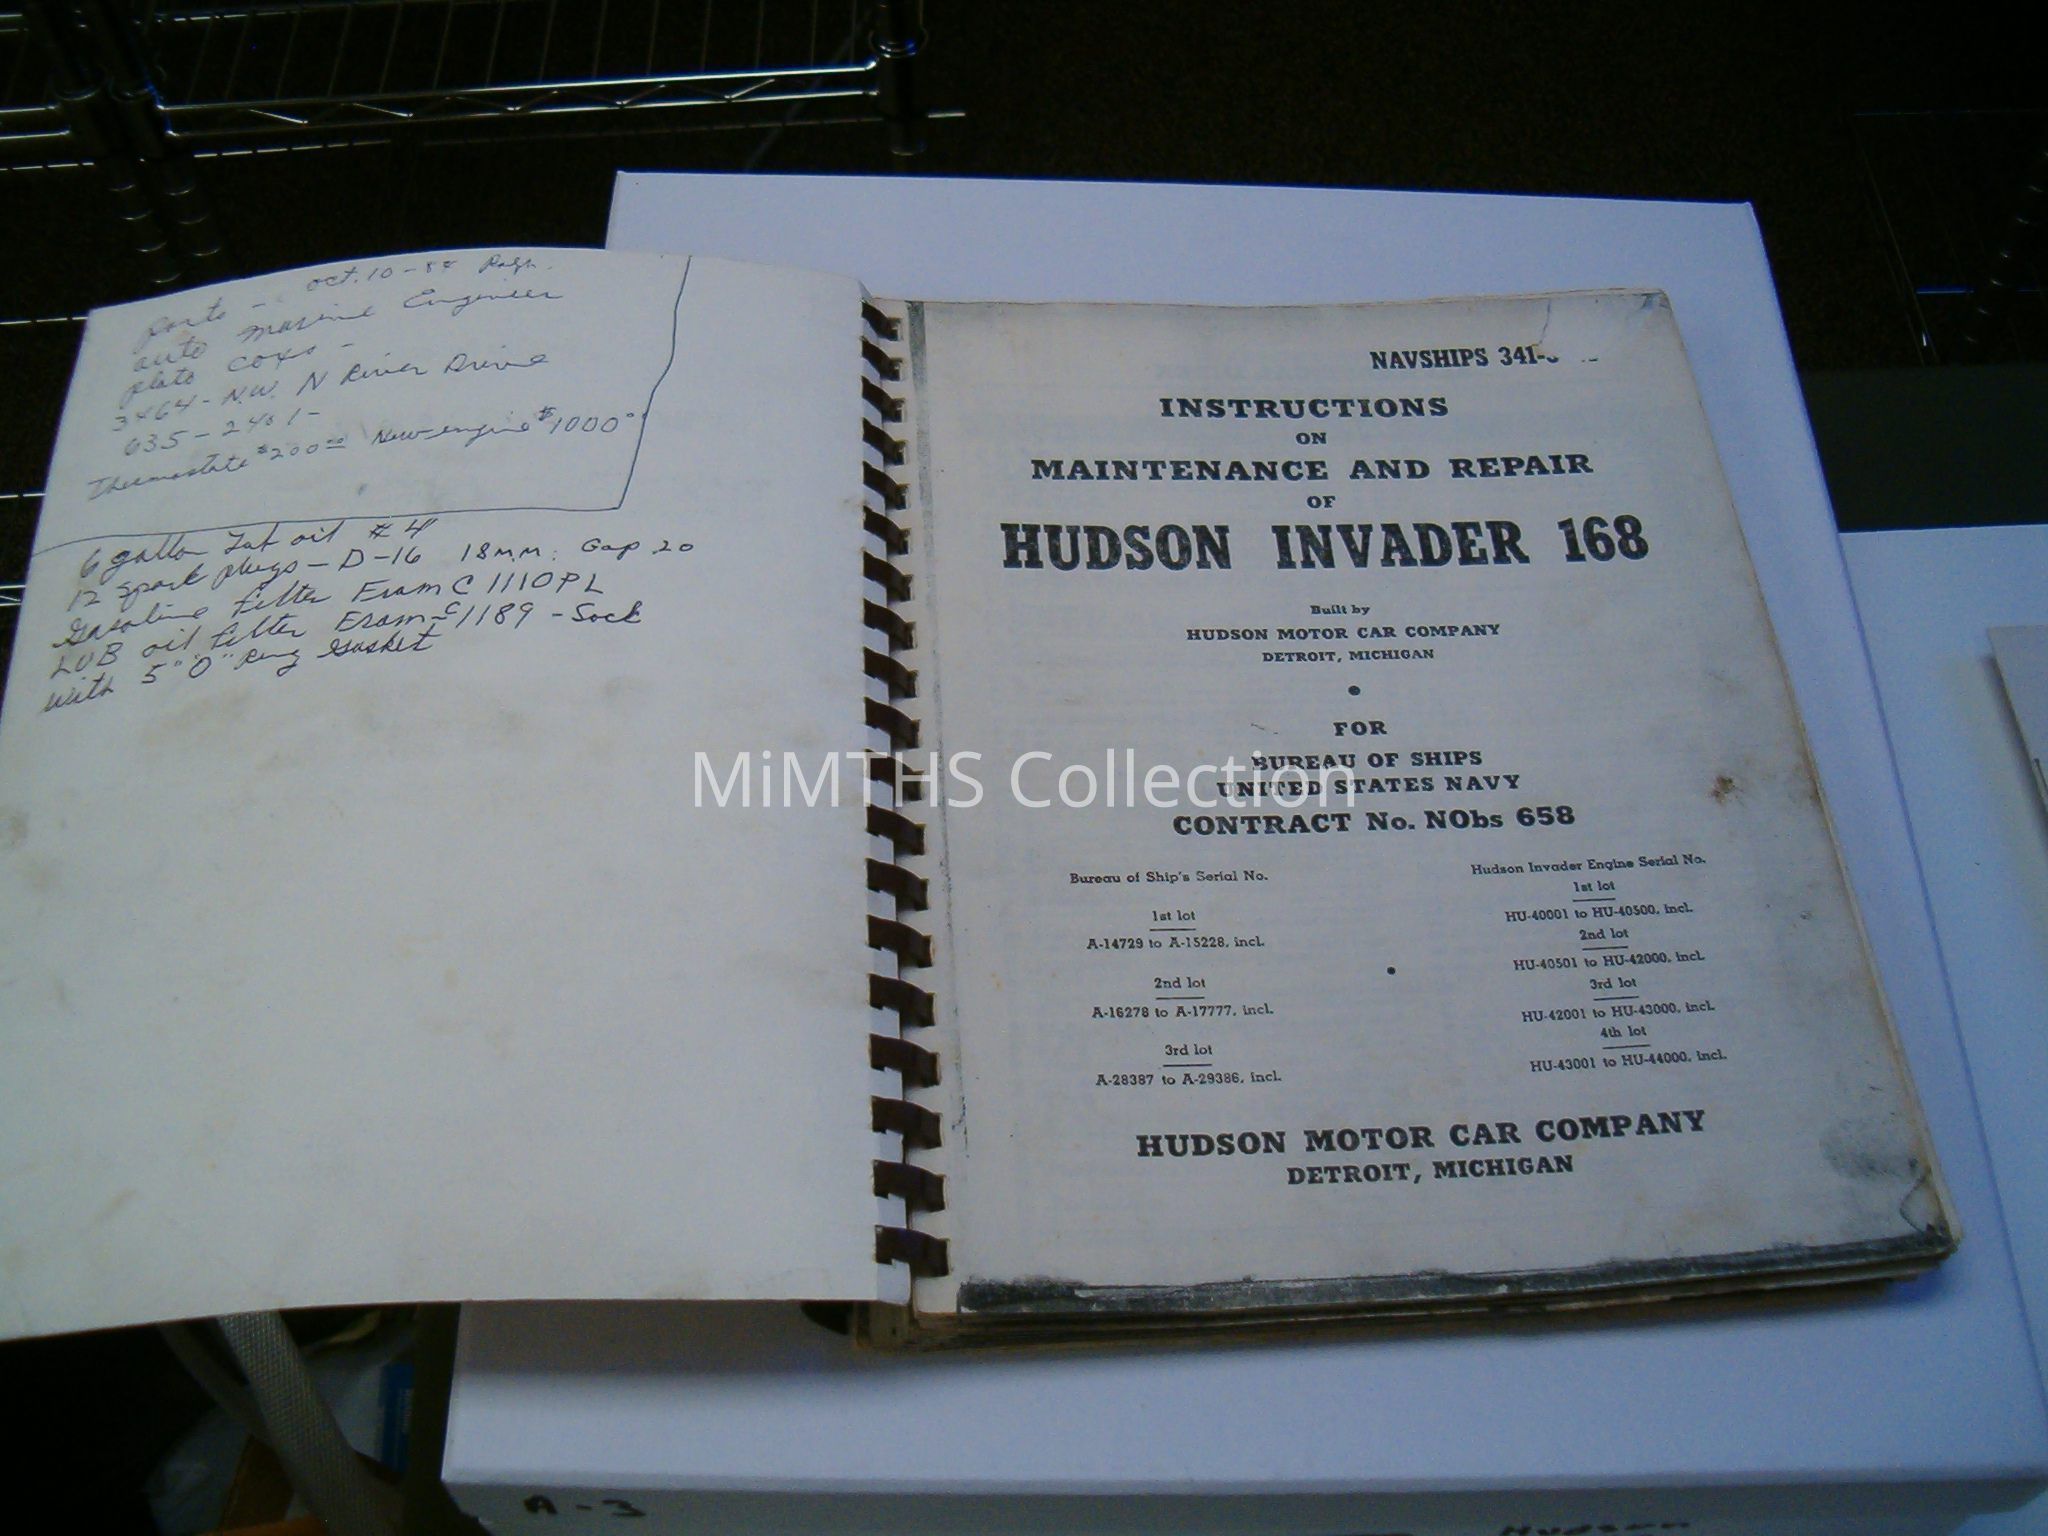 oct. 10 - 84 Ralph.
parts -
auto marine Engineer
plato coxo -
3464 - N.W. N River Drive
635 - 2401 -
Thermostate $200.00 New-engine $1000.00
6 gallon Lub oil #4
12 spark plugs - D-16 18 M.M. Gap 20
Gasoline Filter Fram C 1110PL
LUB oil filter Fram - C1189 - Sock
with 5 "O" Ring Gasket
NAVSHIPS 341-
INSTRUCTIONS
ON
MAINTENANCE AND REPAIR
OF
HUDSON INVADER 168
Built by
HUDSON MOTOR CAR COMPANY
DETROIT, MICHIGAN
•
FOR
BUREAU OF SHIPS
UNITED STATES NAVY
CONTRACT No. NObs 658
Bureau of Ship's Serial No.
1st lot
A-14729 to A-15228, incl.
2nd lot
A-16278 to A-17777, incl.
3rd lot
A-28387 to A-29386, incl.
•
Hudson Invader Engine Serial No.
1st lot
HU-40001 to HU-40500, incl.
2nd lot
HU-40501 to HU-42000, incl.
3rd lot
HU-42001 to HU-43000, incl.
4th lot
HU-43001 to HU-44000, incl.
HUDSON MOTOR CAR COMPANY
DETROIT, MICHIGAN
MiMTHS Collection
A-3
Hudson